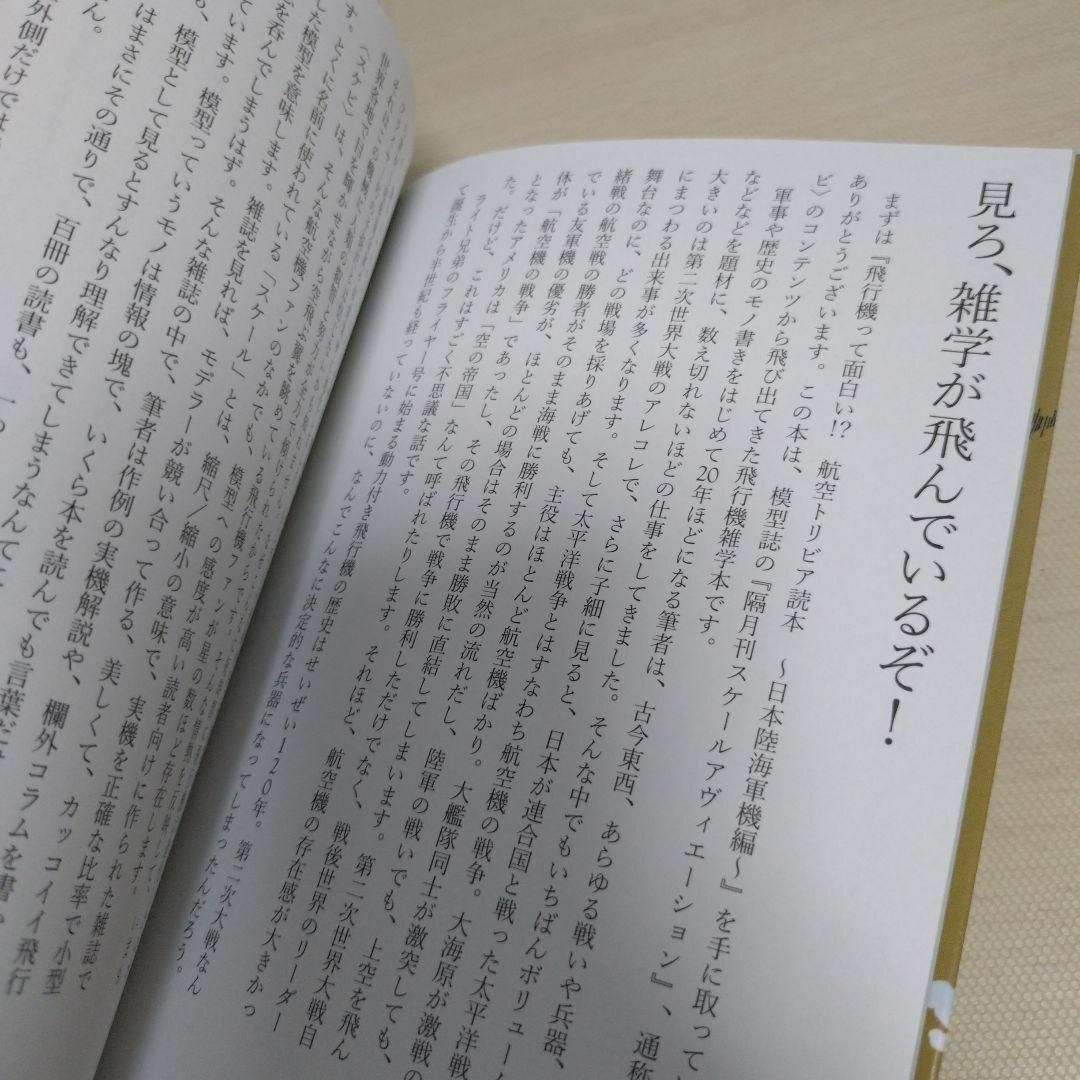 見ろ、雑学が飛んでいるぞ！
まずは『飛行機って面白い!?　航空トリビア読本　～日本陸海軍機編～』を手に取って
ありがとうございます。この本は、模型誌の『隔月刊スケールアヴィエーション』、通称
ビ〉のコンテンツから飛び出てきた飛行機雑学本です。
軍事や歴史のモノ書きをはじめて20年ほどになる筆者は、古今東西、あらゆる戦いや兵器、
などなどを題材に、数え切れないほどの仕事をしてきました。そんな中でもいちばんボリューム
大きいのは第二次世界大戦のアレコレで、さらに子細に見ると、日本が連合国と戦った太平洋戦
にまつわる出来事が多くなります。そして太平洋戦争とはすなわち航空機の戦争。大海原が激戦の
舞台なのに、どの戦場を採りあげても、主役はほとんど航空機ばかり。大艦隊同士が激突しても、
緒戦の航空戦の勝者がそのまま海戦に勝利するのが当然の流れだし、陸軍の戦いでも、上空を飛ん
でいる友軍機の優劣が、ほとんどの場合はそのまま勝敗に直結してしまいます。第二次世界大戦自
体が「航空機の戦争」であったし、その飛行機で戦争に勝利しただけでなく、戦後世界のリーダー
となったアメリカは「空の帝国」なんて呼ばれたりします。それほど、航空機の存在感が大きかっ
た。だけど、これはすごく不思議な話です。
ライト兄弟のフライヤー号に始まる動力付き飛行機の歴史はせいぜい120年。第二次大戦なん
て誕生から半世紀も経っていないのに、なんでこんなに決定的な兵器になってしまったんだろう。
〈スケビ〉は、そんな航空機ファンのなかでも、模型ファン
す。とくに名前に使われている「スケール」とは、縮尺／縮小の意味で、実機を正確な比率で小型
した模型を意味します。雑誌を見れば、モデラーが競い合って作る、美しくて、カッコイイ飛行
を呑んでしまうはず。そんな雑誌の中で、筆者は作例の実機解説や、欄外コラムを書い
ています。模型っていうモノは情報の塊で、いくら本を読んでも言葉だ
も、模型として見るとすんなり理解できてしまうなんてこ
はまさにその通りで、百冊の読書も、「
外側だけでは
ん。